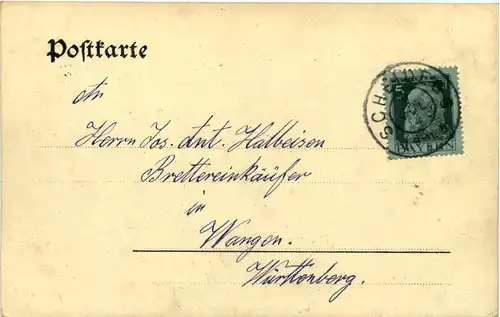 Postkarte
An
Herrn Jos. Ant. Halbeisen
Brettereinkäufer
in
Wangen.
Württenberg.
5
BAYERN